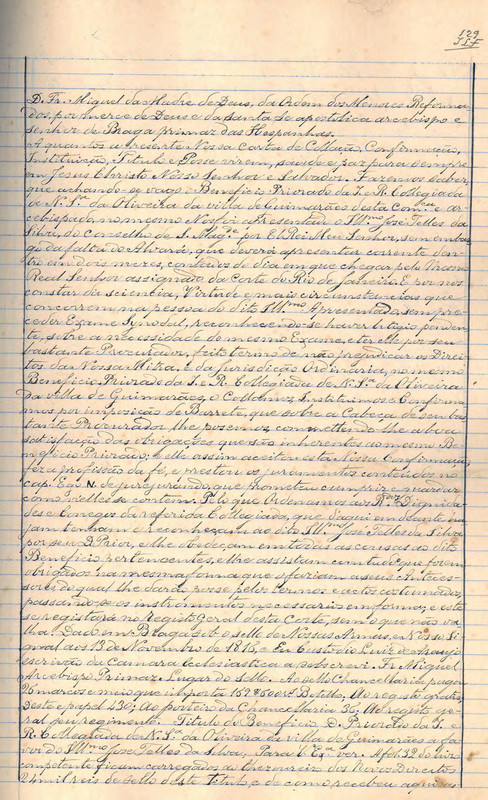 129
D. Fr. Miguel da Madre de Deus, da Ordem dos Menores Reforma-
dos, por merce de Deus e da santa Se apostolica arcebispo e
senhor de Braga primaz das Hespanhas.
A quantos a presente Nossa Carta de Collação, Confirmação,
Instituição, Titulo e Posse virem, saude e paz para sempre
em Jesus Christo Nosso Senhor e Salvador. Fazemos saber,
que achando-se vago o Beneficio Priorado da I. e R. Collegiada
de N. Sra da Oliveira da villa de Guimarães desta com.ca e ar-
cebispado, no mesmo Nos foi apresentado o Ill.mo José Telles da
Silva, do conselho de S. Mag.de por El Rei Meu Senhor, sem embar-
go da falta do Alvará, que deverá apresentar corrente den-
tro em dois mezes, contados do dia em que chegar pelo Mesmo
Real Senhor assignado da Corte do Rio de Janeiro. E por nos
constar da sciencia, Virtude e mais circumstancias que
concorrem na pessoa do dito Ill.mo Apresentado, sem pre-
ceder Exame Synodal, reconhecendo-se haver litigio penden-
te, sobre a necessidade do mesmo Exame, e ter elle por seu
bastante Procurador, feito termo de não prejudicar os Direi-
tos da Nossa Mitra, e da jurisdição Ordinaria, no mesmo
Beneficio Priorado da I. e R. Collegiada de N. Sra da Oliveira
da villa de Guimarães, o Collamos, Instituimos e Confirma-
mos por imposição de Barrete, que sobre a Cabeça de seu bas-
tante Procurador lhe pozemos, commettendo lhe a boa
satisfação das obrigações que são inherentes ao mesmo Be-
neficio Priorado; e elle assim aceitou esta Nossa Confirmação,
fez a profissão da fé, e prestou os juramentos conteudos no
cap. Ego N. de jurejurando, que prometeu cumprir e guardar
como n'elles se contem. P.lo que Ordenamos aos R.dos Dignida-
des e Conegos da referida Collegiada, que d'aqui em deante ha-
jam tenham e reconheçam ao dito Ill.mo José Telles da Silva
por seu D. Prior, e lhe obedeçam em todas as cousas ao dito
Beneficio pertencentes, e lhe assistam com tudo que forem
obrigados na mesma forma que o fariam a seus Anteces-
sores do qual lhe darão posse pelos termos e actos costumados,
passando-se os instrumentos necessarios em forma; e esta
se registará no Registo Geral desta Corte, sem o que não va-
lha. Dado em Braga sob o sello de Nossas Armas, e Nosso Si-
gnal aos 13 de Novembro de 1815, e Eu Custodio Luiz de Araujo
escrivão da Camara Ecclesiastica a sobscrevi. Fr. Miguel
Arcebispo Primaz. Lugar do sello. Ao sello Chancellaria pagou
26 marcos e mais que importa Do sello, Ao registo gratis,
Deste e papel 430; Ao porteiro da Chancellaria 36; Ao registo ge-
ral seu regimento. Titulo do Beneficio D. Priorado da I. e
R. Collegiada de N. Sra da Oliveira da villa de Guimarães a fa-
vor do Ill.mo José Telles da Silva, Para V. Ex.a ver. A fol. 32 do livro
competente ficam carregados ao thezoureiro dos Novos Direitos
24 mil reis de sello deste Titulo, e de como recebeu aqui os